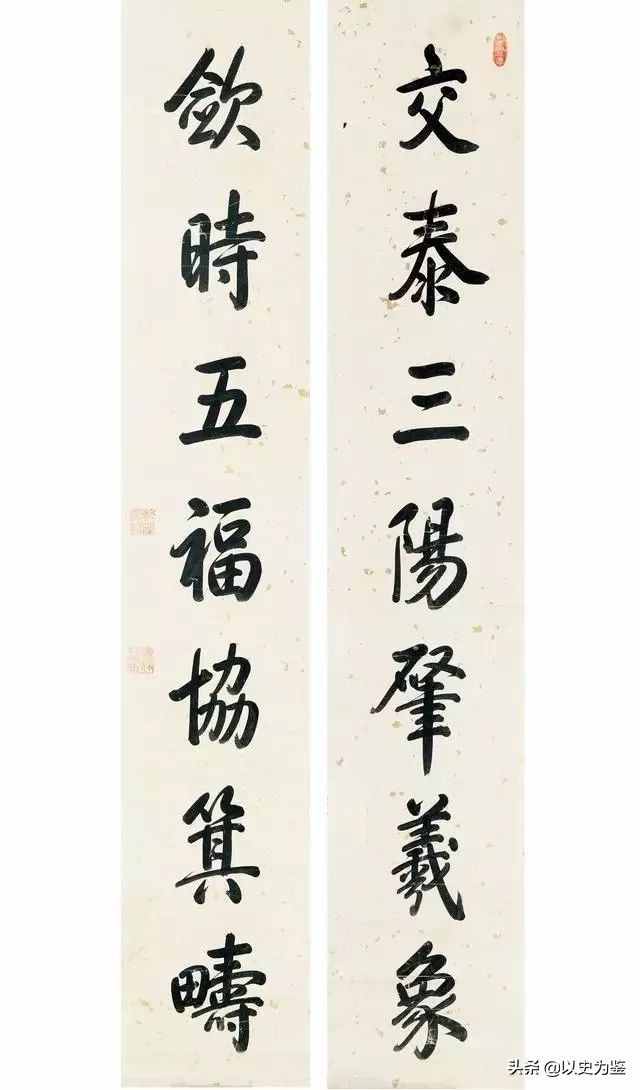 交泰三陽肇羲象
歛時五福協箕疇
头条 @以史为鉴